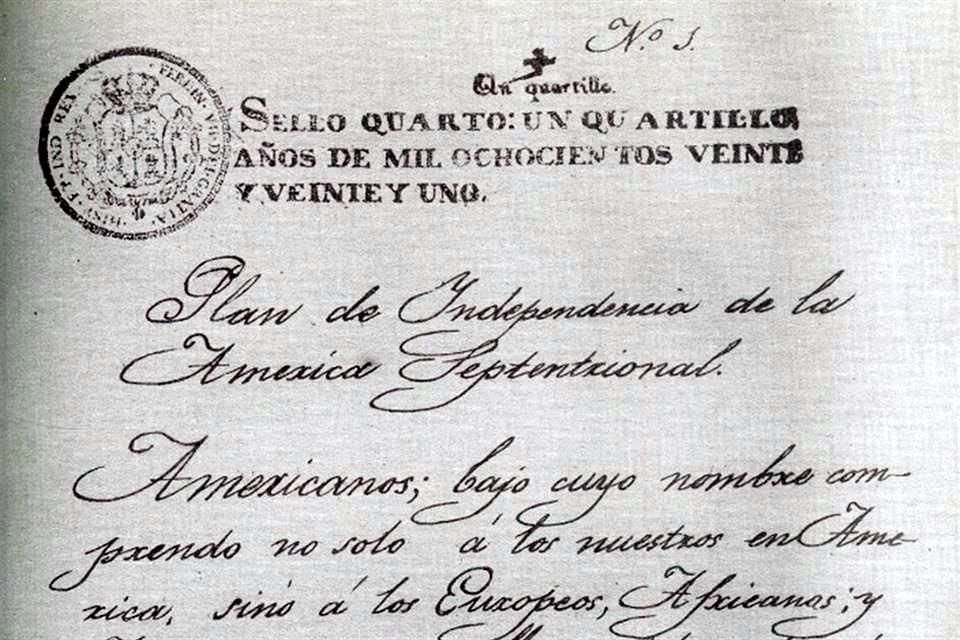 Nº 1.
Un quartillo.
SELLO QUARTO: UN QUARTILLO,
AÑOS DE MIL OCHOCIENTOS VEINTE
Y VEINTE Y UNO.
HISP. ET IND REX FERDIN VII DEI GRATIA
Plan de Independencia de la
America Septentrional.
Americanos; bajo cuyo nombre com-
prendo no solo á los nuestros en Ame-
rica, sinó á los Europeos, Africanos; y